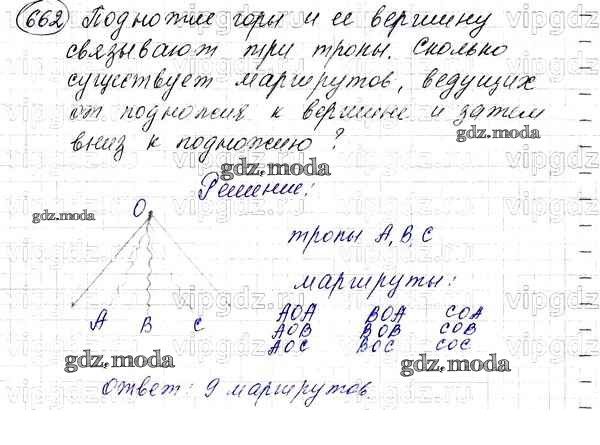 662 Подножие горы и её вершину
связывают три тропы. Сколько
существует маршрутов, ведущих
от подножия к вершине и затем
вниз к подножию?
gdz.moda
gdz.moda
Решение:
gdz.moda
O
тропы A, B, C
маршруты:
A B C
AOA BOA COA
AOB BOB COB
AOC BOC COC
gdz.moda
gdz.moda
Ответ: 9 маршрутов.
vipgdz.ru